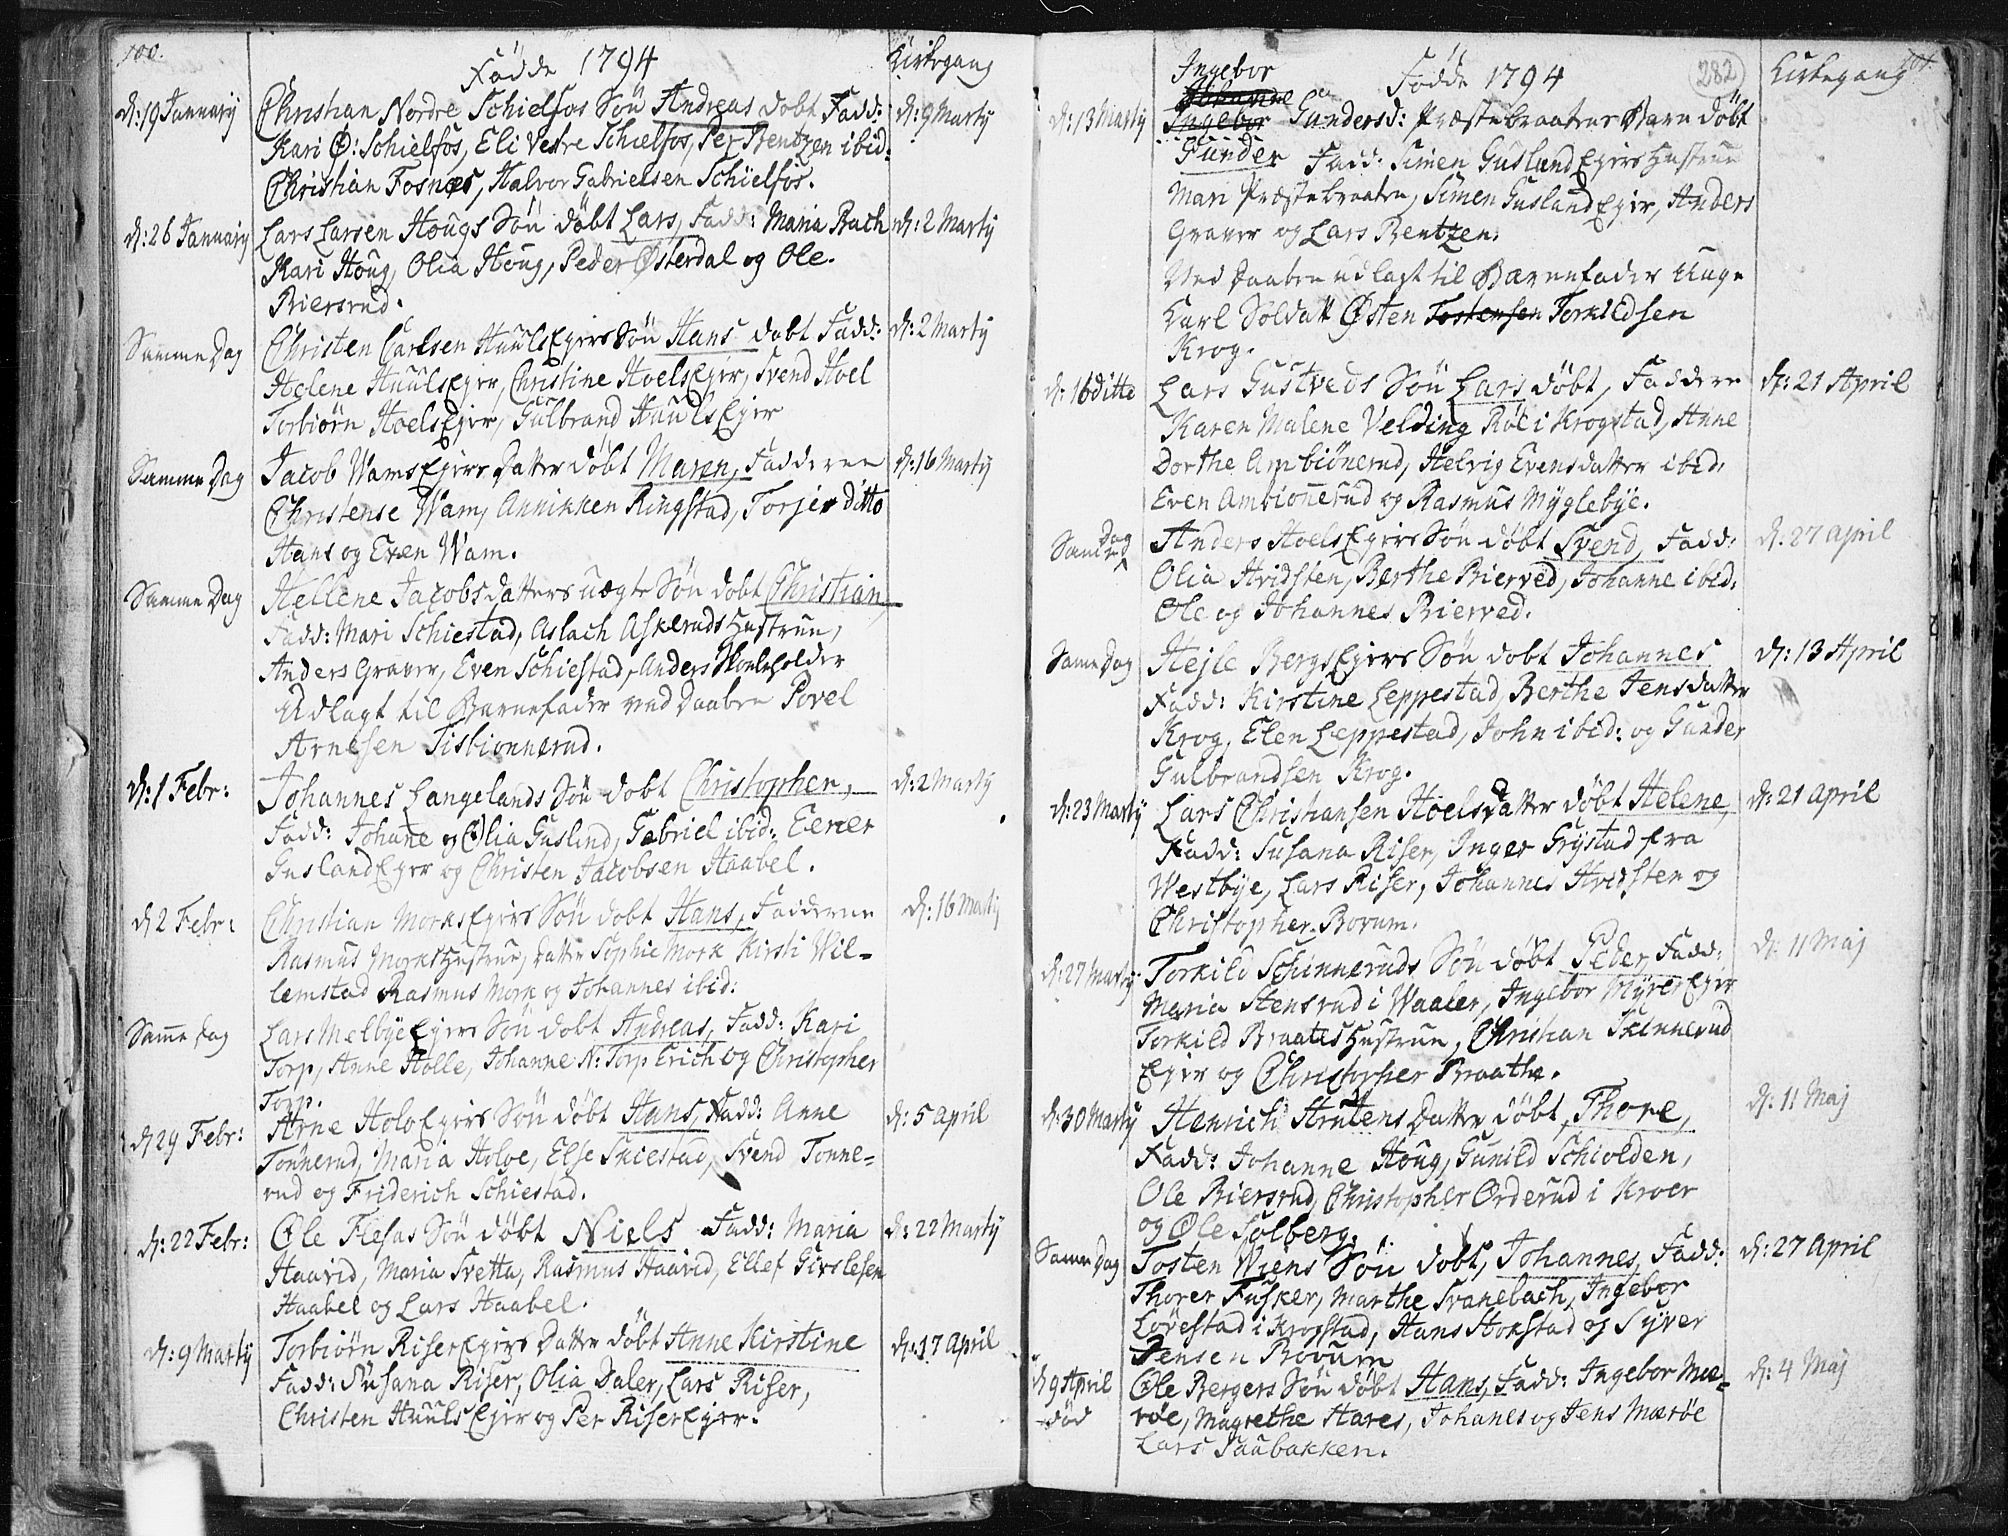 100.
Födde 1794
Kirkegang
d: 19 January
Christian Nordre Schielfos Sön Andreas dobt Fadd:
d: 9 Marty
Kari Ø: Schielfos, Eli Vestre Schielfos, Per Bentzen ibid:
Christian Fosnes, Halvor Gabrielsen Schielfos.
d: 26 January
Lars Larsen Hougs Sön döbt Lars, Fadd: Maria Bach
d: 2 Marty
Kari Houg, Olia Houg, Peder Østerdal og Ole
Biersrud.
Samme Dag
Christen Carlsen HuulsEiers Sön Hans dobt Fadd:
d: 2 Marty
Helene HuulsEier, Christine HoelsEier, Svend Hoel
Torbiörn HoelsEier, Gulbrand HuulsEier
Samme Dag
Jacob WamsEiers Datter döbt Maren, Fadderne
d: 16 Marty
Christense Wam, Annikken Ringstad, Torjer ditto
Hans og Even Wam.
Samme Dag
Hellene Jacobsdatters uægte Sön dobt Christian
Fadd: Mari Schiestad, Aslach Askeruds Hustrue,
Anders Graver, Even Schiestad, Anders Skoleholder
Udlagt til Barnefader ved Daaben Povel
Arnesen Tisbionnerud.
d: 1 Febr:
Johannes Langelands Sön dobt Christopher,
d: 2 Marty
Fadd: Johane og Olia Guslund, Gabriel ibid: Ener
GuslandEier og Christen Jacobsen Haabel.
d 2 Febr:
Christian MorksEiers Sön dobt Hans, Fadderne
d: 16 Marty
Rasmus Morks Hustrue, Datter Sophie Mork Kirsti Wil-
lemstad Rasmus Mork og Johannes ibid:
Samme Dag
Lars MelbyeEiers Sön dobt Andreas, Fadd: Kari
Torp, Anne Holle, Johanne N: Torp Erich og Christopher
Torp.
d 29 Febr:
Arne HoloEiers Sön döbt Hans, Fadd: Anne
d: 5 April
Tonnerud, Maria Holoe, Else Skiestad, Svend Tonne-
rud og Friderich Schiestad.
d: 22 Febr:
Ole Flesas Sön döbt Niels Fadd: Maria
d: 22 Marty
Haavid, Maria Svetta, Rasmus Haavid, Ellef Girslesen
Haabel og Lars Haabel.
d: 9 Marty
Torbiörn RiserEiers Datter döbt Anne Kirstine
d: 17 April
Fadd: Susana Riser, Olia Daler, Lars Riser,
Christen HuulsEier og Per RiserEier.
282
101.
Ingebor
Födde 1794
Kirkegang
d: 13 Marty
Johanne
Ingebor Gundersd: Præstebraatens Barn döbt
Gunder Fadd: Simen GuslandEiers Hustrue
Mari Præstebraaten, Simen GuslandEier, Anders
Graver og Lars Bentzen.
Ved Daaben udlagt til Barnefader Unge
Karl Soldat Østen Tostensen Torkildsen
Krog.
d: 16 ditto
Lars Gustveds Sön Lars döbt, Faddere
d: 21 April
Karen Malene Velding Röe i Krogstad, Anne
Dorthe Ambiönerud, Helvig Evensdatter ibid:
Even Ambionerud og Rasmus Myglebye.
Samme Dag
Anders HoelsEiers Sön döbt Svend, Fadd:
d: 27 April
Olia Hvidsten, Berthe Bierved, Johanne ibid:
Ole og Johannes Bierved.
Same Dag
Hejle BergsEiers Sön dobt Johannes
d: 13 April
Fadd: Kirstine Leppestad, Berthe Jensdatter
Krog, Elen Leppestad, John ibid: og Gunder
Gulbrandsen Krog.
d: 23 Marty
Lars Christiansen Hoels Datter döbt Helene,
d: 21 April
Fadd: Susana Riser, Inger Grystad fra
Westbye, Lars Riser, Johannes Hvidsten og
Christopher Bovum.
d: 27 Marty
Torkild Schinneruds Sön döbt Peder, Fadd:
d: 11 Maj
Maria Stensrud i Waaler, Ingebor MyrerEier
Torkild Braates Hustrue, Christian Skinnerud
Eier og Christopher Braathe.
d: 30 Marty
Henrich Strutens Datter döbt Thore,
d: 11 Maj
Fadd: Johanne Houg, Gunild Schiolden,
Ole Biersrud, Christopher Orderud i Kroer
og Ole Solberg.
Samme Dag
Tosten Wiens Sön döbt, Johannes, Fadd:
d: 27 April
Thorer Fusker, Marthe Svanebach, Ingebor
Lövestad i Krogstad, Hans Hokstad og Syver
Jensen Bovum
d 9 April
Ole Bergers Sön döbt Hans, Fadd: Ingebor Mæ-
d: 4 Maj
död
röe, Magrethe Hares, Johanes og Jens Mæröe
Lars Saubakken.